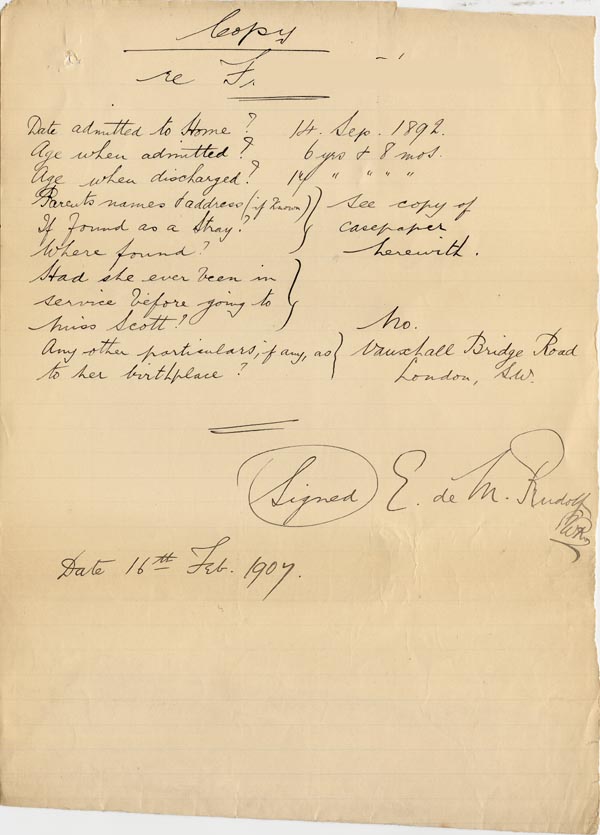 Copy
re F.
Date admitted to Home? 14. Sep. 1892.
Age when admitted? 6 yrs & 8 mos.
Age when discharged? 14 " " " "
Parents names & address (if known) } See copy of
If found as a Stray? casepaper
Where found? herewith.
Had she ever been in
service before going to
Miss Scott? } No.
Any other particulars, if any, as { Vauxhall Bridge Road
to her birthplace? London, S.W.
Signed E. de M. Rudolf
Date 16th Feb. 1907.